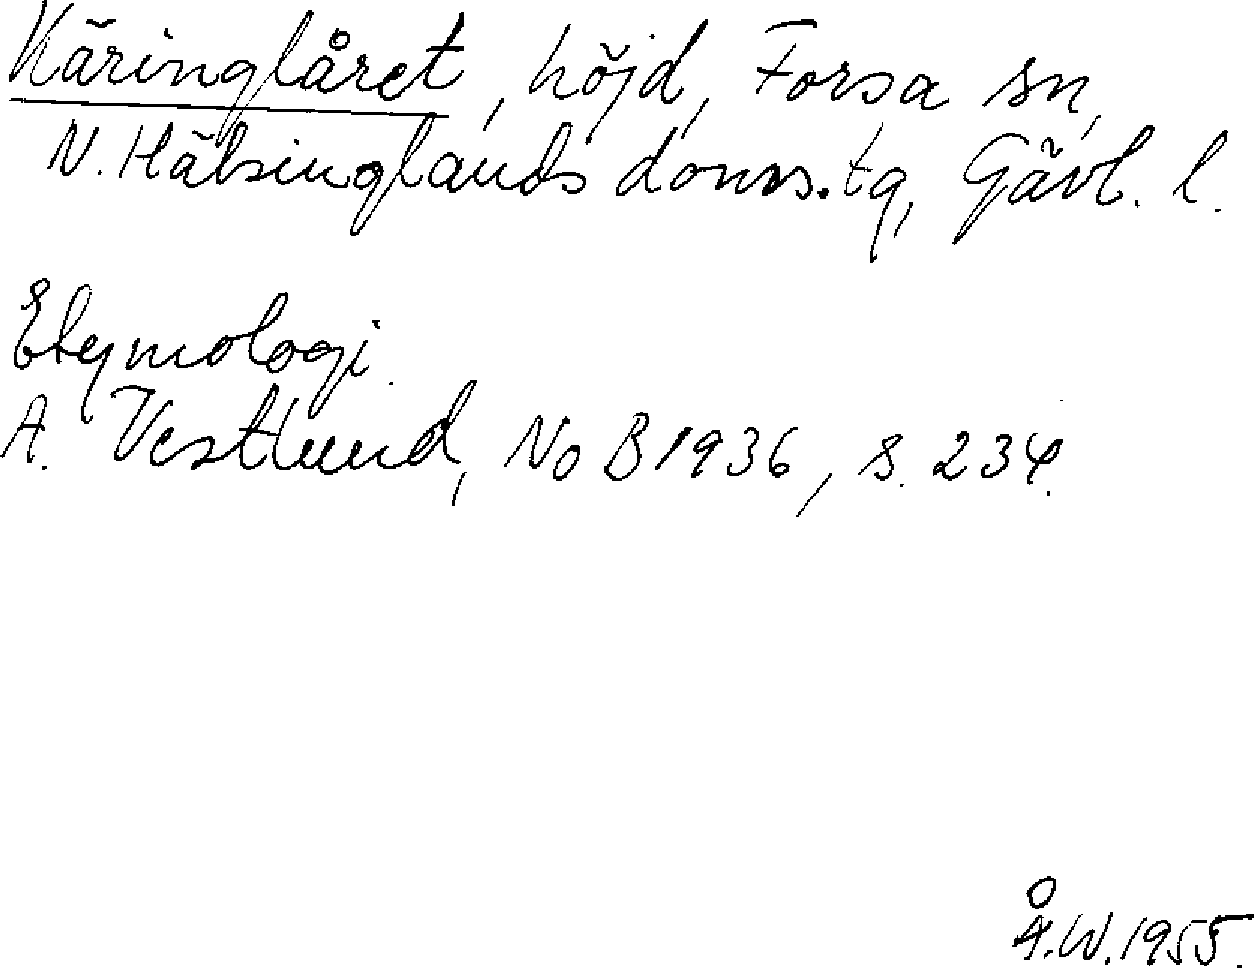 Käringlåret, höjd, Forsa sn,
N. Hälsinglands doms.tg, Gävl. l.
Etymologi.
A. Vestlund, NoB 1936, s. 234.
Å.W. 1955.